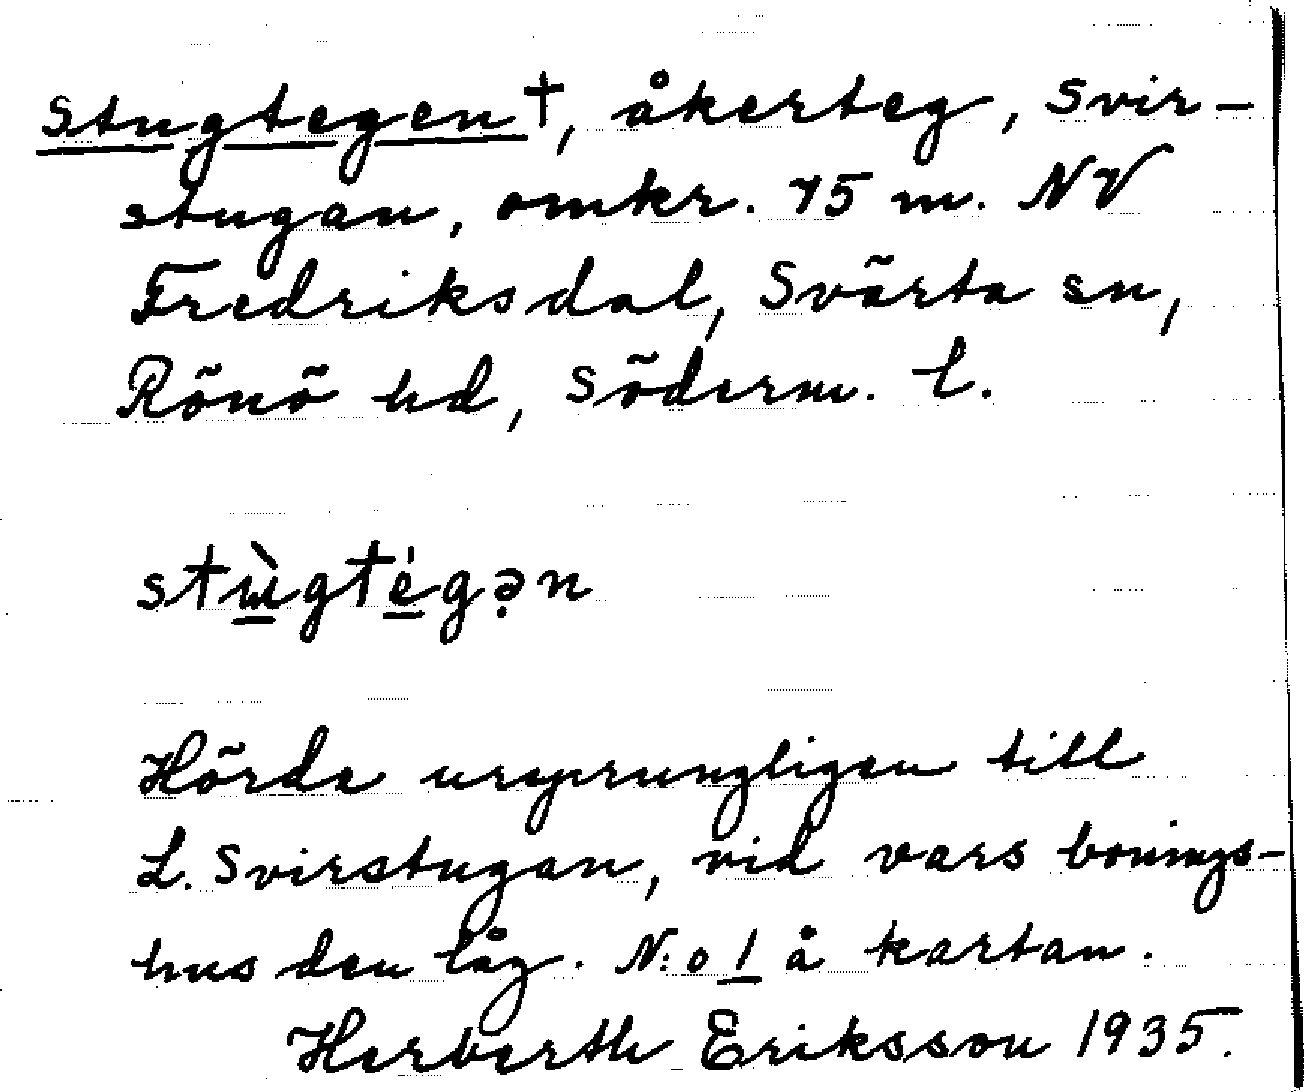 Stugtegen†, åkerteg, Svir-
stugan, omkr. 75 m. NV
Fredriksdal, Svärta sn,
Rönö hd, Söderm. l.
stù̲gté̲gə̣n
Hörde ursprungligen till
L. Svirstugan, vid vars bonings-
hus den låg. N:o 1 å kartan.
Herberth Eriksson 1935.